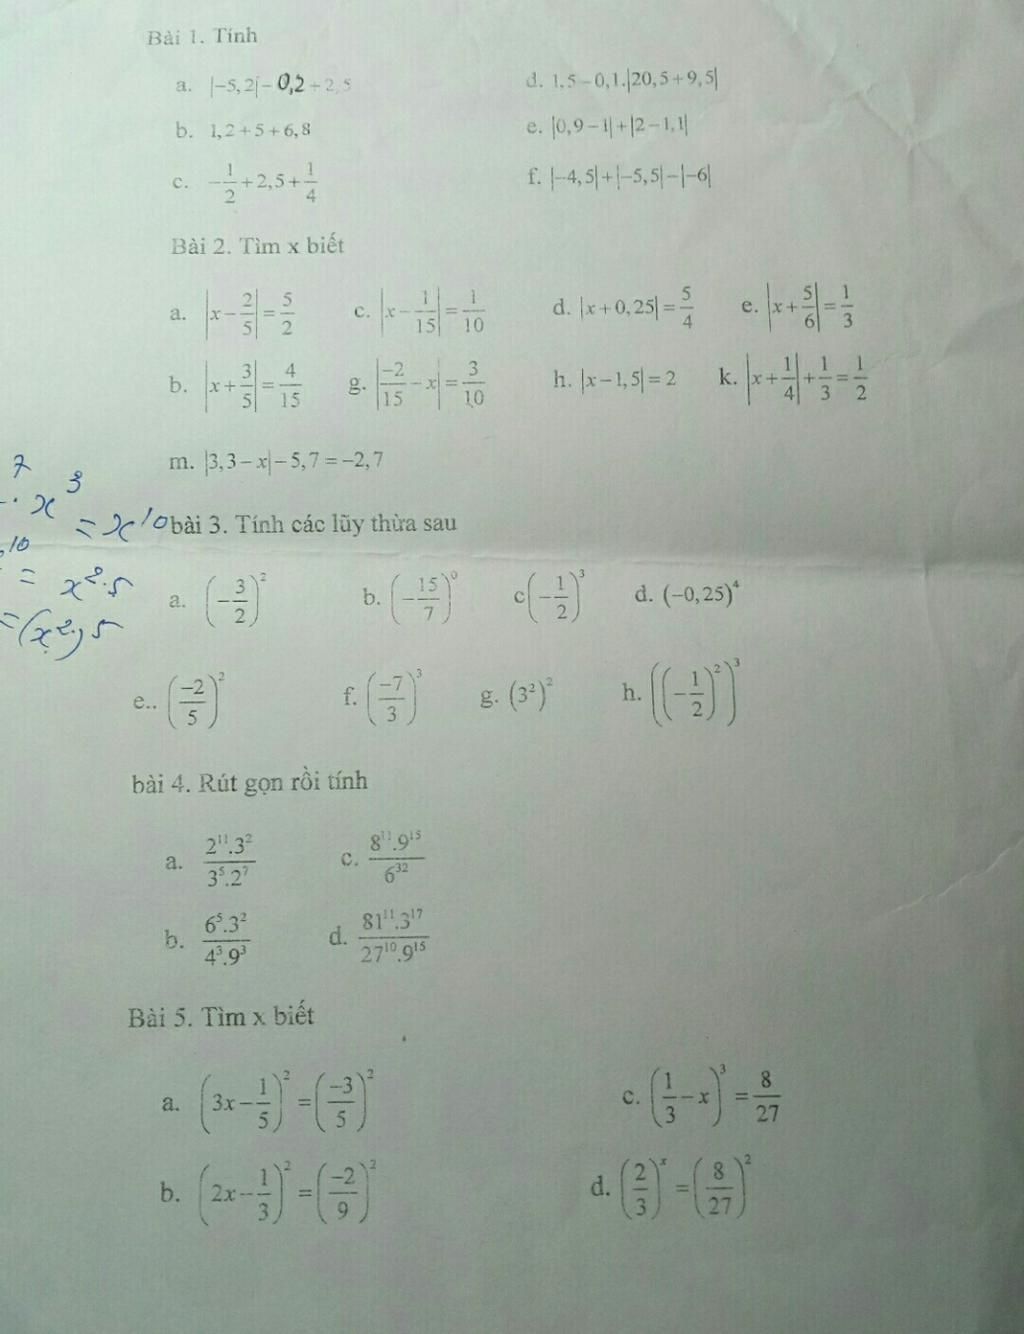 Bài 1. Tính
a. |−5,2| − 0,2 + 2,5 d. 1,5 − 0,1.|20,5 + 9,5|
b. 1,2 + 5 + 6,8 e. |0,9 − 1| + |2 − 1,1|
c. −1/2 + 2,5 + 1/4 f. |−4,5| + |−5,5| − |−6|
Bài 2. Tìm x biết
a. |x − 2/5| = 5/2 c. |x − 1/15| = 1/10 d. |x + 0,25| = 5/4 e. |x + 5/6| = 1/3
b. |x + 3/5| = 4/15 g. |−2/15 − x| = 3/10 h. |x − 1,5| = 2 k. |x + 1/4| + 1/3 = 1/2
m. |3,3 − x| − 5,7 = −2,7
7
. x³ = x¹⁰
10
= x².⁵
= (x²)5
bài 3. Tính các lũy thừa sau
a. (−3/2)² b. (−15/7)⁰ c (−1/2)³ d. (−0,25)⁴
e.. (−2/5)² f. (−7/3)³ g. (3²)² h. ((−1/2)²)³
bài 4. Rút gọn rồi tính
a. 2¹¹.3²/3⁵.2⁷ c. 8¹¹.9¹⁵/6³²
b. 6⁵.3²/4³.9³ d. 81¹¹.3¹⁷/27¹⁰.9¹⁵
Bài 5. Tìm x biết
a. (3x − 1/5)² = (−3/5)² c. (1/3 − x)³ = 8/27
b. (2x − 1/3)² = (−2/9)² d. (2/3)ˣ = (8/27)²